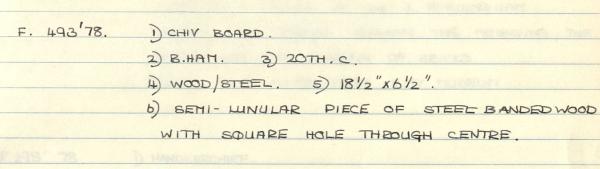 F. 493'78. 1) CHIV BOARD.
2) B.HAM. 3) 20TH. C.
4) WOOD/STEEL. 5) 18 1/2" x 6 1/2".
6) SEMI-LUNULAR PIECE OF STEEL BANDED WOOD
WITH SQUARE HOLE THROUGH CENTRE.